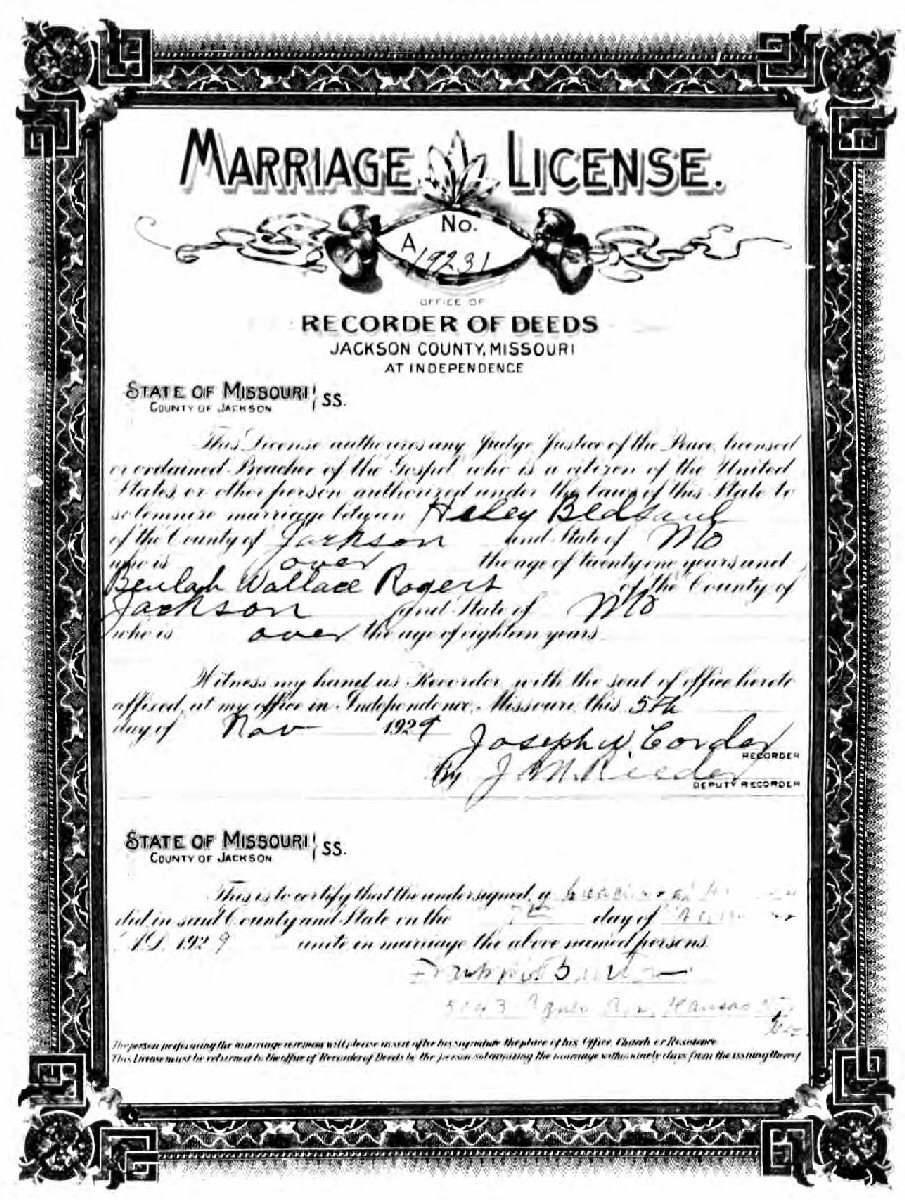 MARRIAGE LICENSE.
No.
A 19231
OFFICE OF
RECORDER OF DEEDS
JACKSON COUNTY, MISSOURI
AT INDEPENDENCE
STATE OF MISSOURI
COUNTY OF JACKSON } SS.
This License authorizes any Judge Justice of the Peace, licensed
or ordained Preacher of the Gospel who is a citizen of the United
States, or other person authorized under the laws of this State to
solemnise marriage between Bedsaul
of the County of Jackson and State of Mo
who is over the age of twenty one years and
Beulah Wallace Rogers of the County of
Jackson and State of Mo
who is over the age of eighteen years
Witness my hand as Recorder, with the seal of office hereto
affixed, at my office in Independence, Missouri this 5th
day of Nov 1929
Joseph W. Corder
RECORDER
By J M Rieder
DEPUTY RECORDER
STATE OF MISSOURI
COUNTY OF JACKSON } SS.
This is to certify that the undersigned, a
did in said County and State on the 7th day of
A.D. 1929 unite in marriage the above named persons
Kansas
The person performing the marriage ceremony will please insert after his signature the place of his Office, Church or Residence
This License must be returned to the office of Recorder of Deeds by the person solemnizing the marriage within ninety days from the issuing thereof